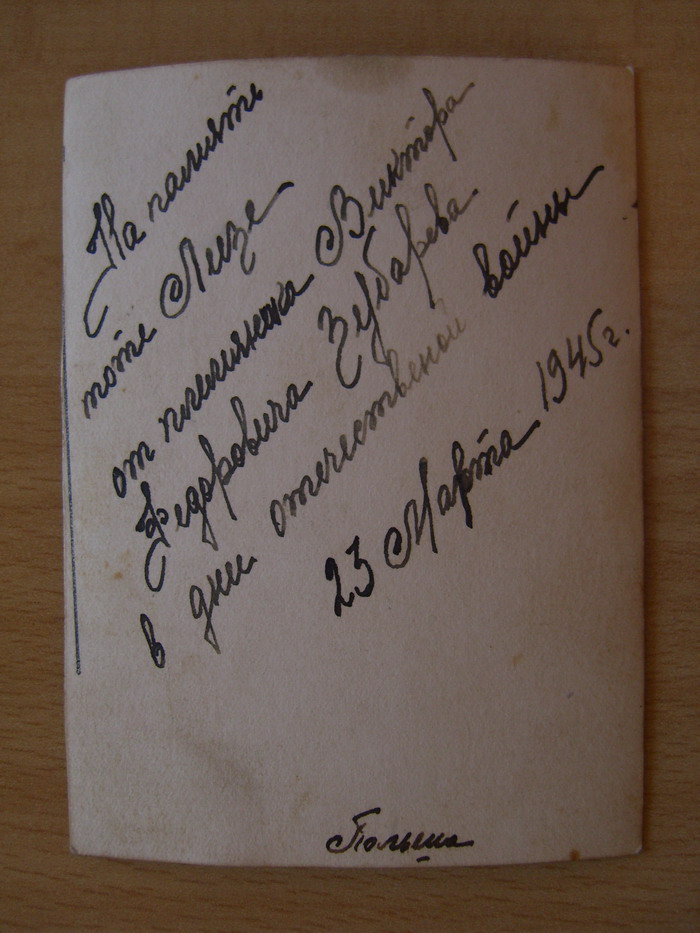 На память
тоте Лизе
от племянника Виктора
Федоровича Зубарева
в дни отечественой войны
23 Марта 1945г.
Польша